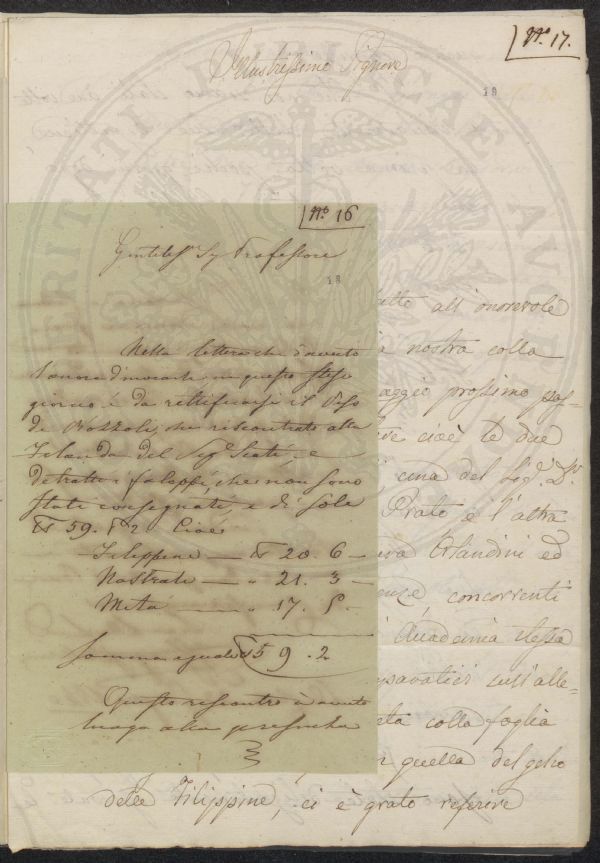 No. 17.
Illustrissimo Signore
19
No. 16
Gentiless. Sig. Professore
18
Nella lettera che ò avuto
l'onore d'inviarle, in questo stesso
giorno è da rettificarsi il peso
de Bozzoli, che riscontrato alla
Filanda del Sig.
detratti i falloppi, che non sono
stati consegnati, e di sole
59. 2 Cioè
Filippine — 20. 6 –
Nostrale — " 21. 3 –
Metà — " 17. 5 –
Somma eguale 59. 2
Questo riscontro à avuto
luogo alla presenza
fatto all'onorevole
a nostra colla
aggio prossimo pas-
cioè le due
cina del Sig. Dr.
Prato e l'altra
Orlandini ed
concorrenti
Accademia stessa
comparativi sull'alle-
colla foglia
quella del gelso
delle Filippine, ci è grato riferire